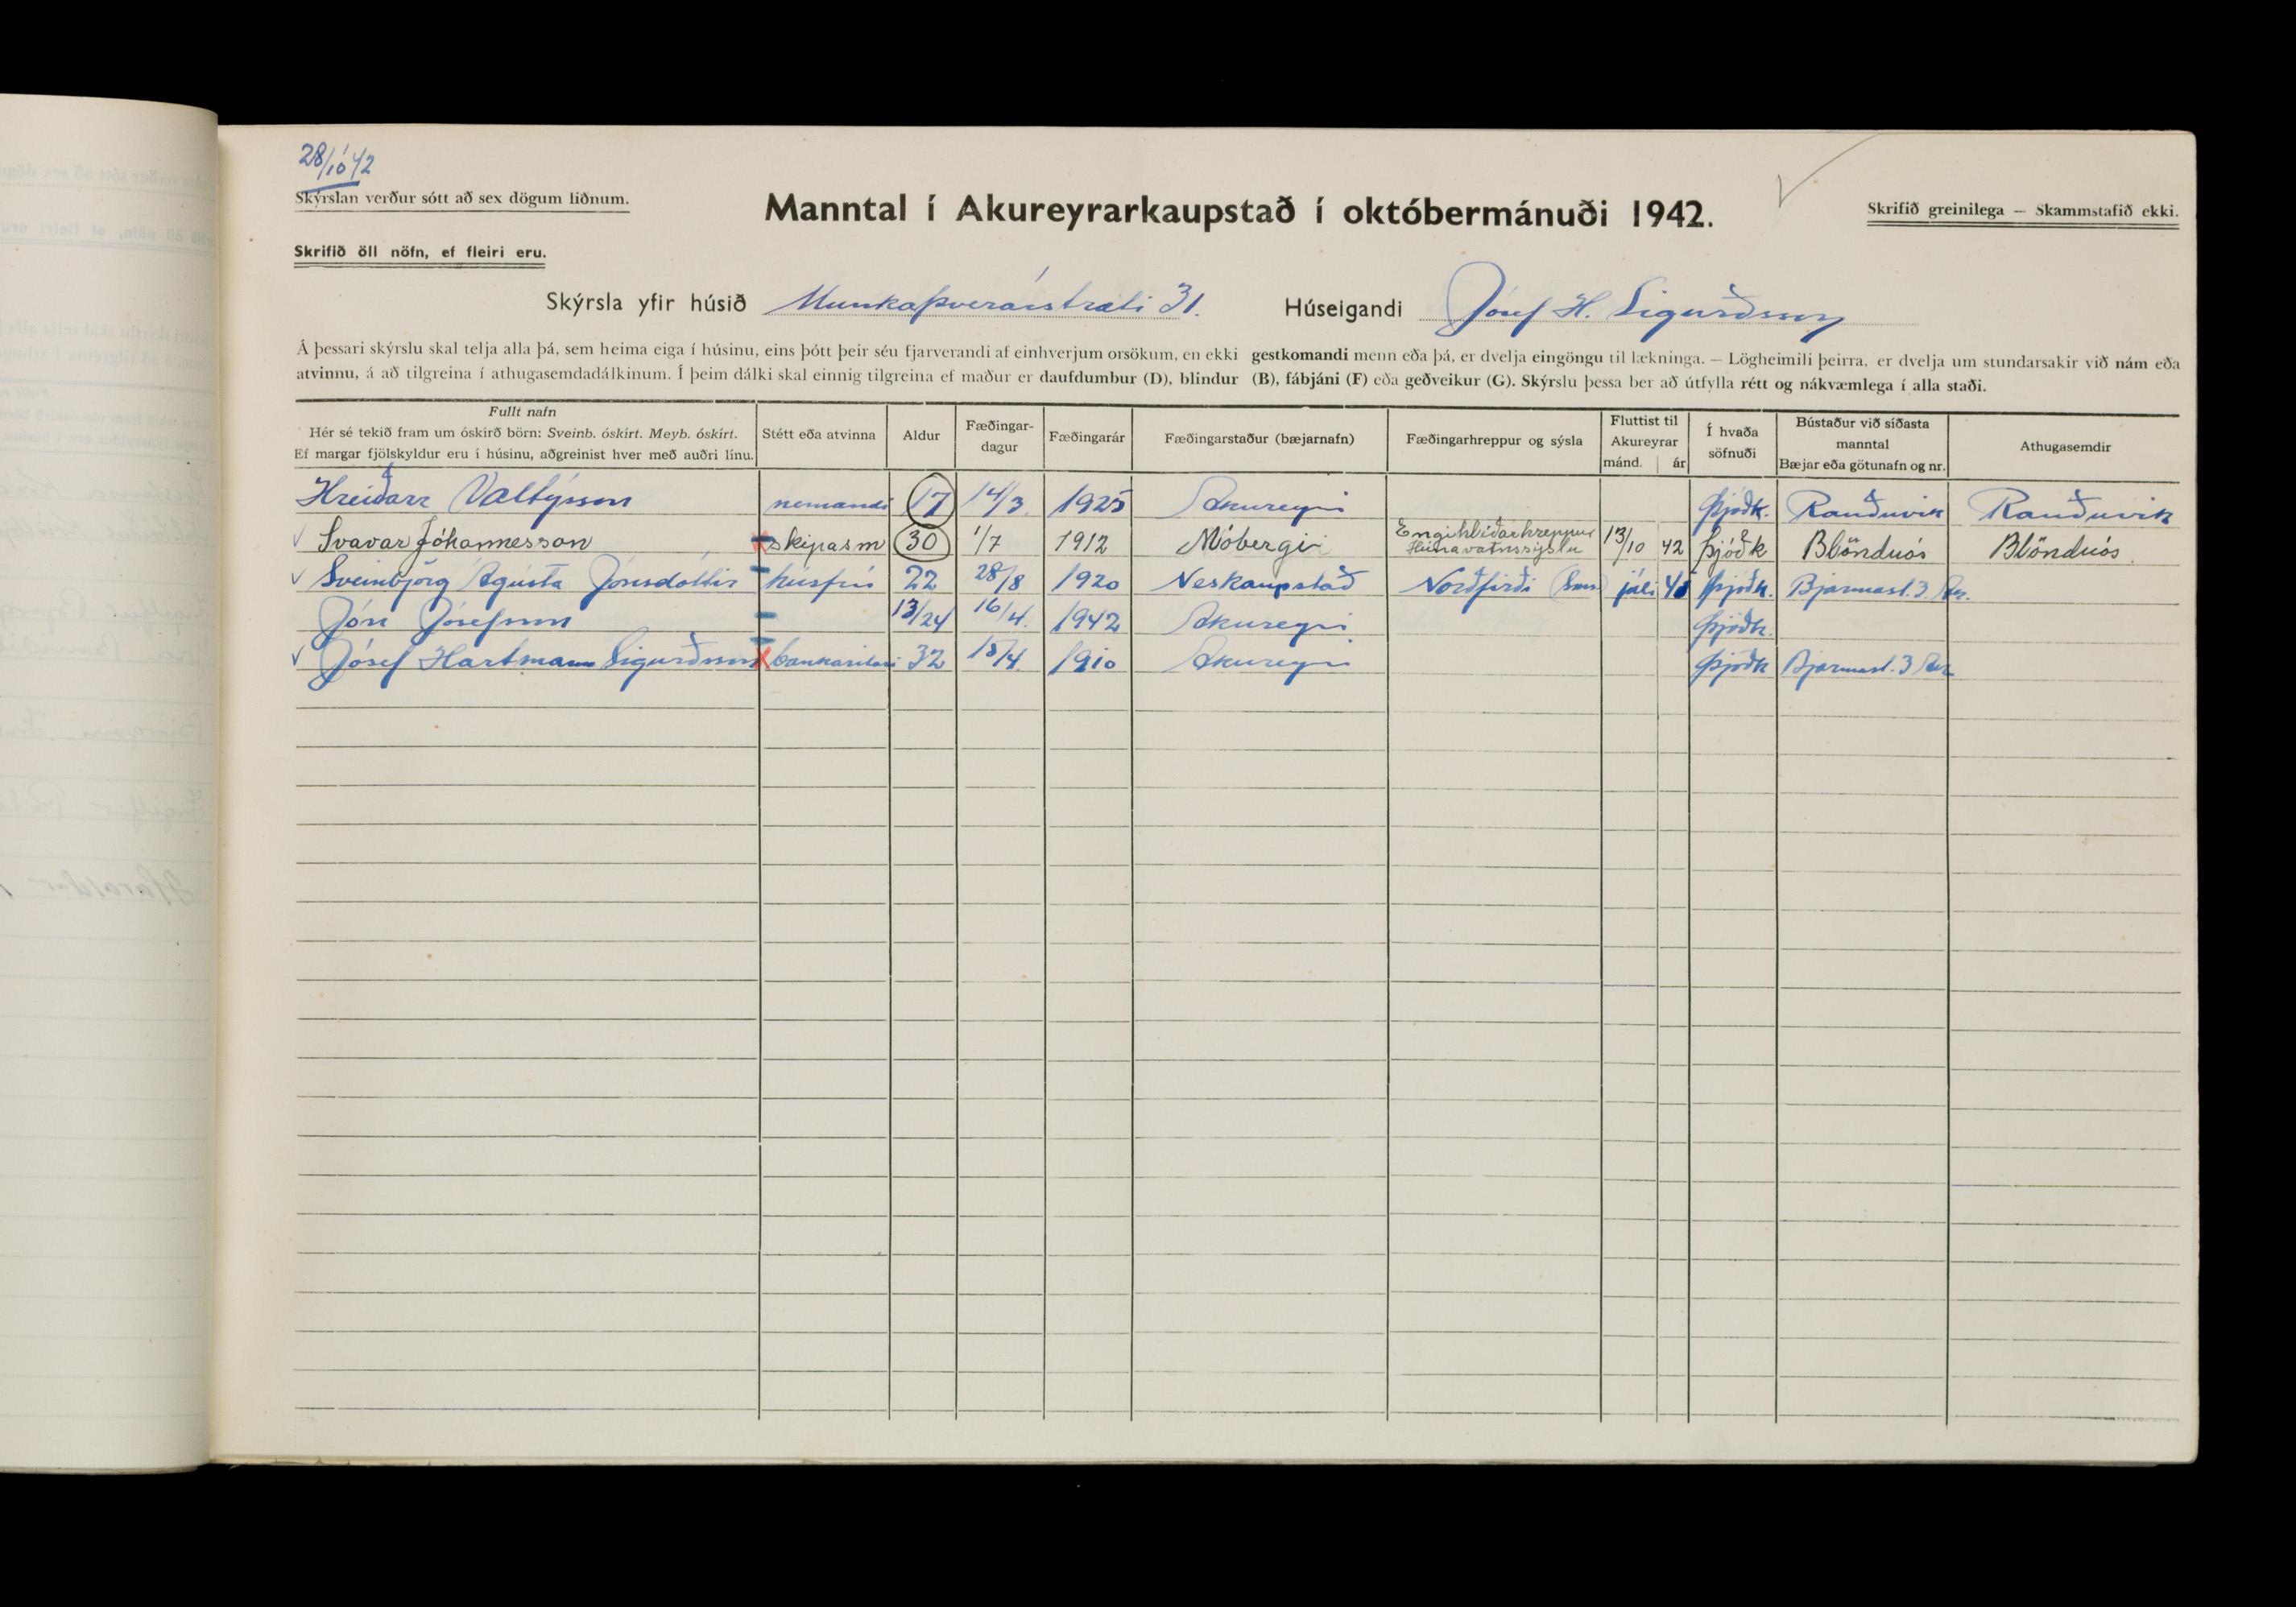 28/10 42
Skýrslan verður sótt að sex dögum liðnum.
Manntal í Akureyrarkaupstað í októbermánuði 1942.
Skrifið greinilega — Skammstafið ekki.
Skrifið öll nöfn, ef fleiri eru.
Skýrsla yfir húsið Munkaþverárstræti 31. Húseigandi Jósef H. Sigurðsson
Á þessari skýrslu skal telja alla þá, sem heima eiga í húsinu, eins þótt þeir séu fjarverandi af einhverjum orsökum, en ekki gestkomandi menn eða þá, er dvelja eingöngu til lækninga. — Lögheimili þeirra, er dvelja um stundarsakir við nám eða
atvinnu, á að tilgreina í athugasemdadálkinum. Í þeim dálki skal einnig tilgreina ef maður er daufdumbur (D), blindur (B), fábjáni (F) eða geðveikur (G). Skýrslu þessa ber að útfylla rétt og nákvæmlega í alla staði.
Fullt nafn
Hér sé tekið fram um óskírð börn: Sveinb. óskírt. Meyb. óskírt.
Ef margar fjölskyldur eru í húsinu, aðgreinist hver með auðri línu.
Stétt eða atvinna
Aldur
Fæðingar-
dagur
Fæðingarár
Fæðingarstaður (bæjarnafn)
Fæðingarhreppur og sýsla
Fluttist til
Akureyrar
mánd. ár
Í hvaða
söfnuði
Bústaður við síðasta
manntal
Bæjar eða götunafn og nr.
Athugasemdir
Hreiðarr Valtýsson nemandi 17 14/3 1925 Akureyri Þjóðk. Rauðuvík Rauðuvík
Svavar Jóhannesson skipasm 30 1/7 1912 Móbergi Engihlíðarhreppur Húnavatnssýslu 13/10 42 Þjóðk Blönduós Blönduós
Sveinbjörg Ágústa Jónsdóttir húsfrú 22 28/8 1920 Neskaupstað Norðfirði júlí Þjóðk. Bjarmast. 3
Jón Jósefsson 13/24 16/4. 1942 Akureyri Þjóðk.
Jósef Hartmann Sigurðsson bankaritari 32 15/4. 1910 Akureyri Þjóðk Bjarmast. 3